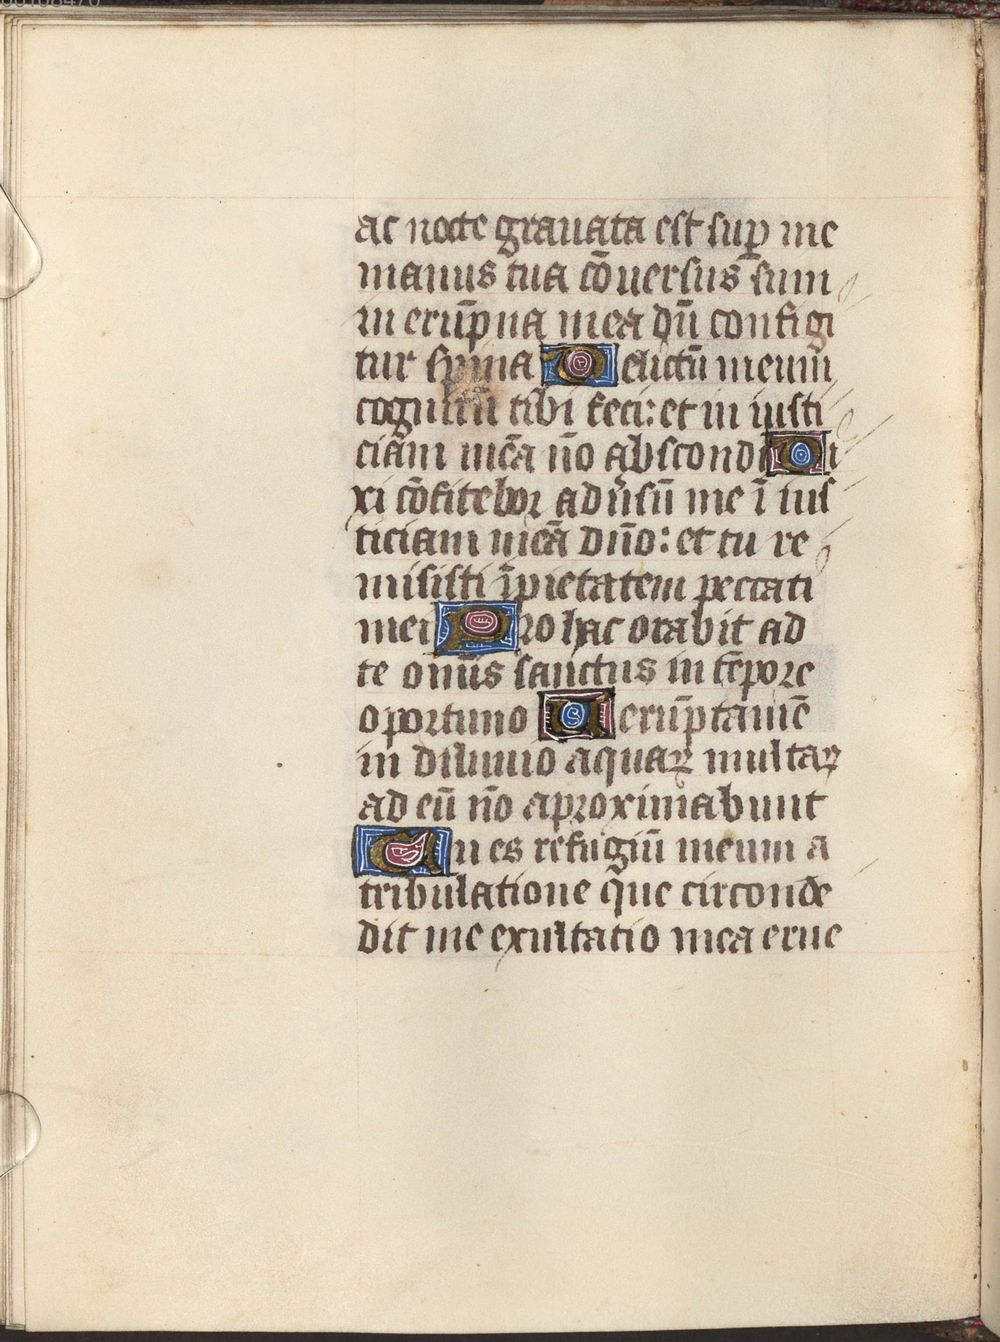 00108470
ac nocte grauata est sup̄ me
manus tua cōuersus sum
in erūpna mea dū configi
tur spina Delictū meum
cognitū tibi feci: et in iusti
ciam meā nō abscondi Di
xi cōfitebor aduͥsū me ī ius
ticiam meā dn̄o: et tu re
misisti īpietatem peccati
mei PRo hac orabit ad
te omīs sanctus in tēpore
oportuno Uerūptamē
in diluuio aquaꝝ multaꝝ
ad eū nō aproximabunt
Tu es refugiū meum a
tribulatione q̄ue circonde
dit me exultatio mea erue